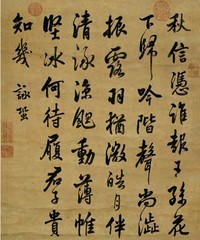 秋信憑誰報王孫花
下歸吟階聲尚澀
振露羽猶微皓月伴
清詠涼颸動薄帷
堅冰何待履君子貴
知幾 詠蛩